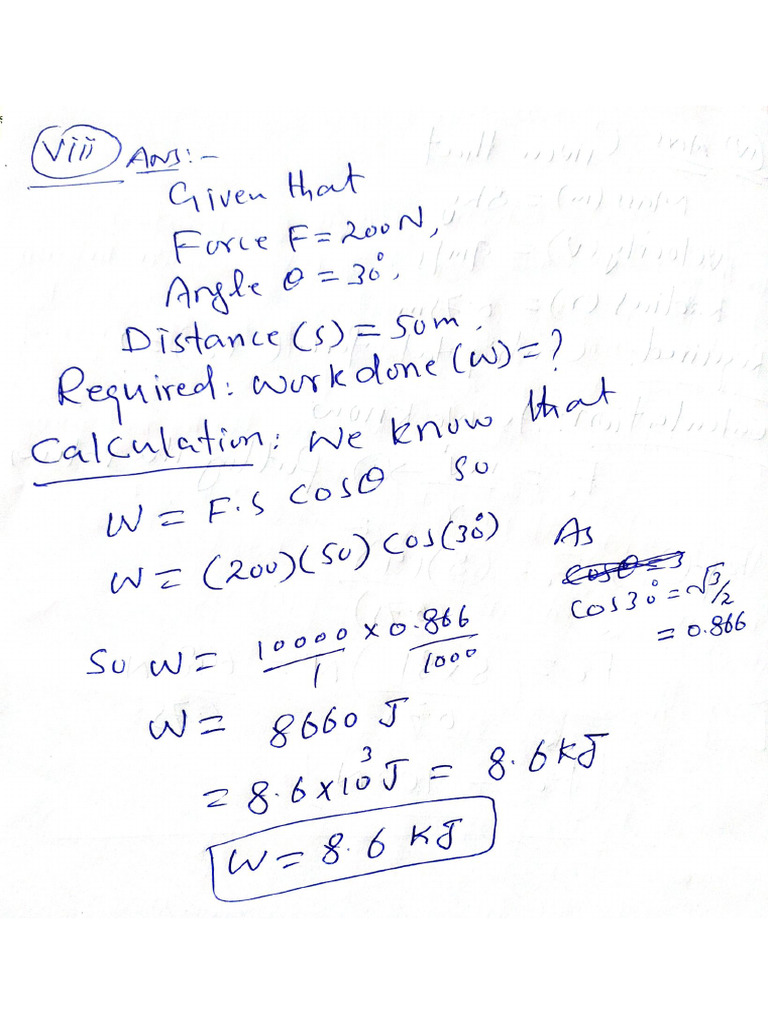 viii Ans:-
Given that
Force F = 200N,
Angle θ = 30°,
Distance (s) = 50m.
Required: workdone (w) = ?
Calculation: We know that
W = F.S cosθ so
W = (200)(50) cos(30°) As
cosθ = 3
cos30° = √3/2
= 0.866
So W = 10000/1 × 0.866/1000
W = 8660 J
= 8.6×10³ J = 8.6 KJ
W = 8.6 KJ